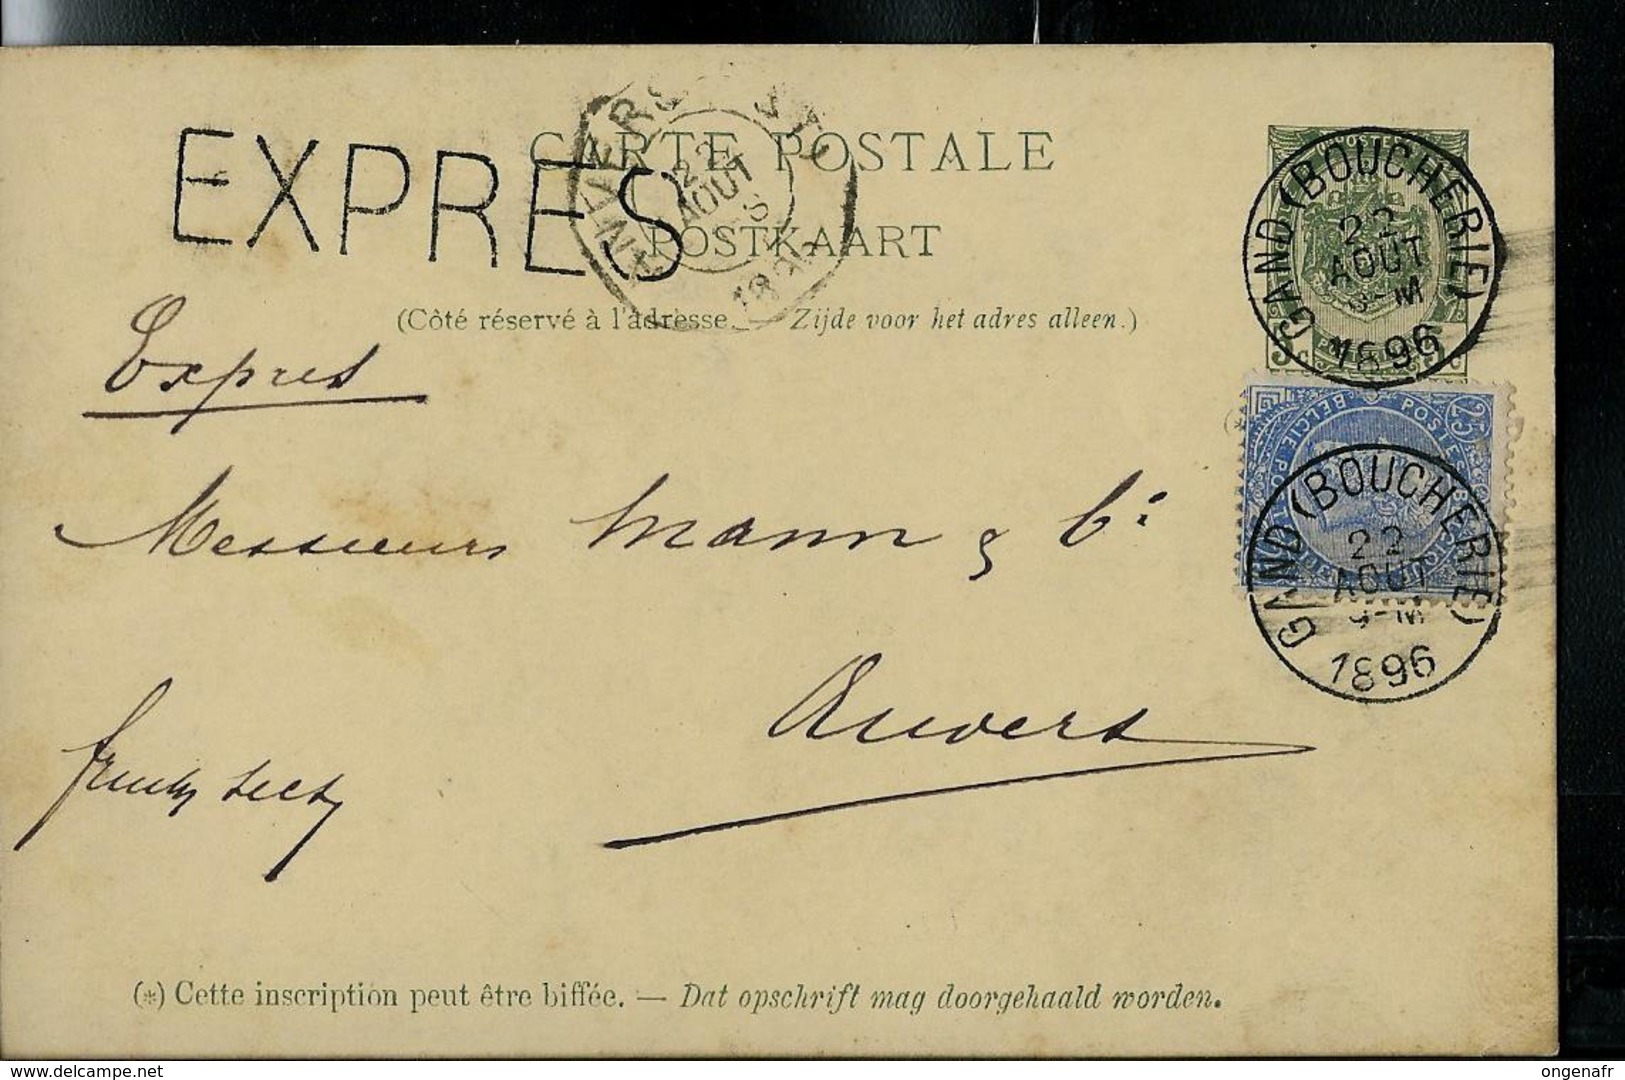 EXPRES
CARTE POSTALE
POSTKAART
(Côté réservé à l'adresse. — Zijde voor het adres alleen.)
ANVERS
22
AOUT
GAND (BOUCHERIE)
22
AOUT
8-M
1896
5 C
Expres
25
POSTES
BELGIE
GAND (BOUCHERIE)
22
AOUT
9-M
1896
Messieurs Mann & Cie
Anvers
(*) Cette inscription peut être biffée. — Dat opschrift mag doorgehaald worden.
delcampe.net
ongenafr